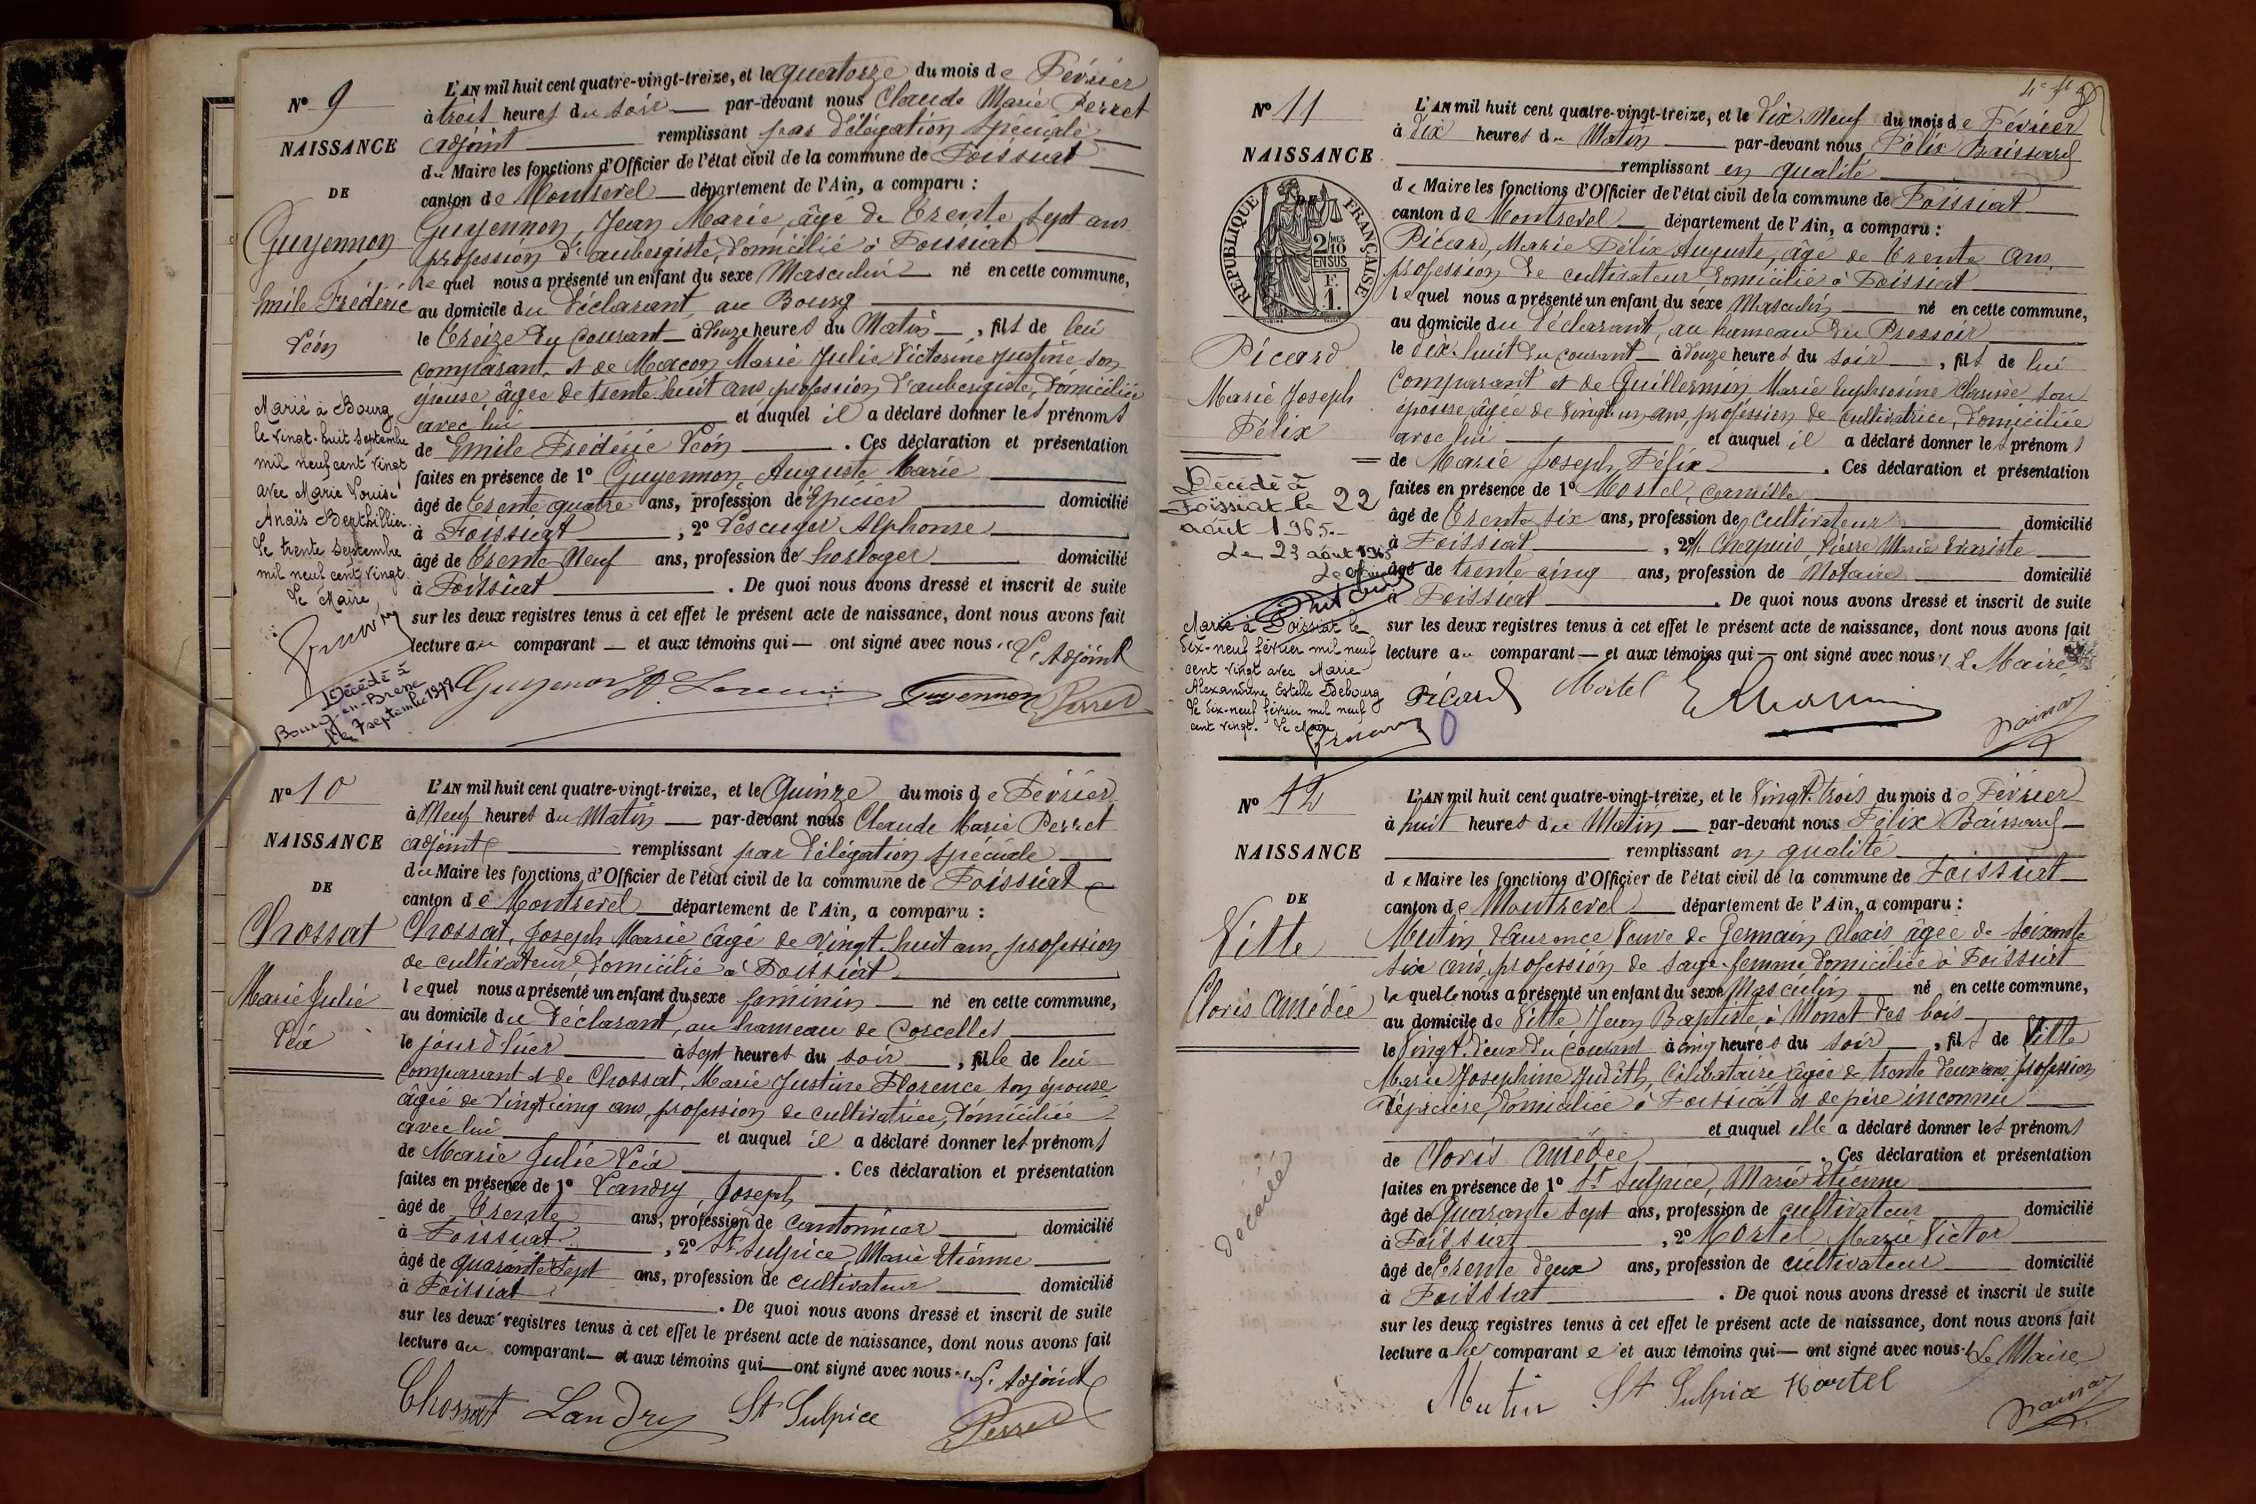 N° 9
NAISSANCE
DE
Guyennon
Emile Frédéric
Léon
Marié à Bourg
le vingt-huit septembre
mil neuf cent vingt
avec Marie Louise
Anaïs Berthillier.
Le trente septembre
mil neuf cent vingt.
Le Maire,
Décédé à
Bourg-en-Bresse
le 7 septembre
L'AN mil huit cent quatre-vingt-treize, et le quatorze du mois de Février
à trois heures du soir par-devant nous Claude Marie Perret
adjoint remplissant par délégation spéciale
du Maire les fonctions d'Officier de l'état civil de la commune de Foissiat
canton de Montrevel département de l'Ain, a comparu :
Guyennon, Jean Marie, âgé de trente sept ans
profession d'aubergiste, domicilié à Foissiat
lequel nous a présenté un enfant du sexe Masculin né en cette commune,
au domicile du déclarant, au Bourg
le treize du courant à onze heures du Matin, fils de lui
comparant et de Macon Marie Julie Victorine Justine son
épouse âgée de trente huit ans profession d'aubergiste, domiciliée
avec lui et auquel il a déclaré donner les prénoms
de Emile Frédéric Léon. Ces déclaration et présentation
faites en présence de 1° Guyennon, Auguste Marie
âgé de trente quatre ans, profession de Epicier domicilié
à Foissiat, 2° Lescuyer Alphonse
âgé de trente Neuf ans, profession de horloger domicilié
à Foissiat. De quoi nous avons dressé et inscrit de suite
sur les deux registres tenus à cet effet le présent acte de naissance, dont nous avons fait
lecture au comparant et aux témoins qui ont signé avec nous. L'Adjoint
Guyenon Guyennon Perret
N° 10
NAISSANCE
DE
Chossat
Marie Julie
Léa
L'AN mil huit cent quatre-vingt-treize, et le Quinze du mois de Février
à Neuf heures du Matin par-devant nous Claude Marie Perret
adjoint remplissant par délégation spéciale
du Maire les fonctions d'Officier de l'état civil de la commune de Foissiat
canton de Montrevel département de l'Ain, a comparu :
Chossat, Joseph Marie âgé de vingt-huit ans, profession
de cultivateur, domicilié à Foissiat
lequel nous a présenté un enfant du sexe féminin né en cette commune,
au domicile du déclarant, au hameau de Corcelles
le jour d'hier à sept heures du soir, fille de lui
comparant et de Chossat, Marie Justine Florence son épouse
âgée de vingt cinq ans, profession de cultivatrice, domiciliée
avec lui et auquel il a déclaré donner les prénoms
de Marie Julie Léa. Ces déclaration et présentation
faites en présence de 1° Landry, Joseph
âgé de trente ans, profession de cantonnier domicilié
à Foissiat, 2° St Sulpice, Marie Etienne
âgé de quarante sept ans, profession de cultivateur domicilié
à Foissiat. De quoi nous avons dressé et inscrit de suite
sur les deux registres tenus à cet effet le présent acte de naissance, dont nous avons fait
lecture au comparant et aux témoins qui ont signé avec nous. L'Adjoint
Chossat Landry St Sulpice Perret
N° 11
NAISSANCE
DE
REPUBLIQUE FRANÇAISE
2/10
EN SUS
F.
1.
Picard
Marie Joseph
Félix
Décédé à
Foissiat le 22
août 1965.
Le 23 août 1965
Marié à Foissiat le
dix-neuf février mil neuf
cent vingt avec Marie
Alexandrine Estelle Debourg
Le dix-neuf février mil neuf
cent vingt. Le Maire
L'AN mil huit cent quatre-vingt-treize, et le dix-Neuf du mois de Février
à dix heures du Matin par-devant nous Félix Baissard
remplissant en qualité
de Maire les fonctions d'Officier de l'état civil de la commune de Foissiat
canton de Montrevel département de l'Ain, a comparu :
Picard, Marie Félix Auguste, âgé de trente ans,
profession de cultivateur domicilié à Foissiat
lequel nous a présenté un enfant du sexe Masculin né en cette commune,
au domicile du déclarant, au hameau du Pressoir
le dix-huit du courant à douze heures du soir, fils de lui
comparant et de Guillermin Marie Euphrosine Clarisse son
épouse âgée de vingt un ans, profession de cultivatrice, domiciliée
avec lui et auquel il a déclaré donner les prénoms
de Marie Joseph Félix. Ces déclaration et présentation
faites en présence de 1° Mortel, Camille
âgé de trente six ans, profession de cultivateur domicilié
à Foissiat, 2° Chapuis, Pierre Marie Evariste
âgé de trente cinq ans, profession de Notaire domicilié
à Foissiat. De quoi nous avons dressé et inscrit de suite
sur les deux registres tenus à cet effet le présent acte de naissance, dont nous avons fait
lecture au comparant et aux témoins qui ont signé avec nous. Le Maire
Picard Mortel
N° 12
NAISSANCE
DE
Vitte
Cloris Amédée
décédé
L'AN mil huit cent quatre-vingt-treize, et le Vingt-trois du mois de Février
à huit heures du Matin par-devant nous Félix Baissard
remplissant en qualité
de Maire les fonctions d'Officier de l'état civil de la commune de Foissiat
canton de Montrevel département de l'Ain, a comparu :
Mutin Laurence Veuve de Germain Alexis âgée de soixante
six ans, profession de sage-femme domiciliée à Foissiat
laquelle nous a présenté un enfant du sexe Masculin né en cette commune,
au domicile de Vitte Jean Baptiste, à Monet des bois
le vingt-deux du courant à cinq heures du soir, fils de Vitte
Marie Josephine Judith, célibataire âgée de trente deux ans, profession
d'épicière, domiciliée à Foissiat et de père inconnu
et auquel elle a déclaré donner les prénoms
de Cloris Amédée. Ces déclaration et présentation
faites en présence de 1° St Sulpice, Marie Etienne
âgé de Quarante sept ans, profession de cultivateur domicilié
à Foissiat, 2° Mortel Marie Victor
âgé de trente deux ans, profession de cultivateur domicilié
à Foissiat. De quoi nous avons dressé et inscrit de suite
sur les deux registres tenus à cet effet le présent acte de naissance, dont nous avons fait
lecture à la comparante et aux témoins qui ont signé avec nous. Le Maire
Mutin St Sulpice Mortel